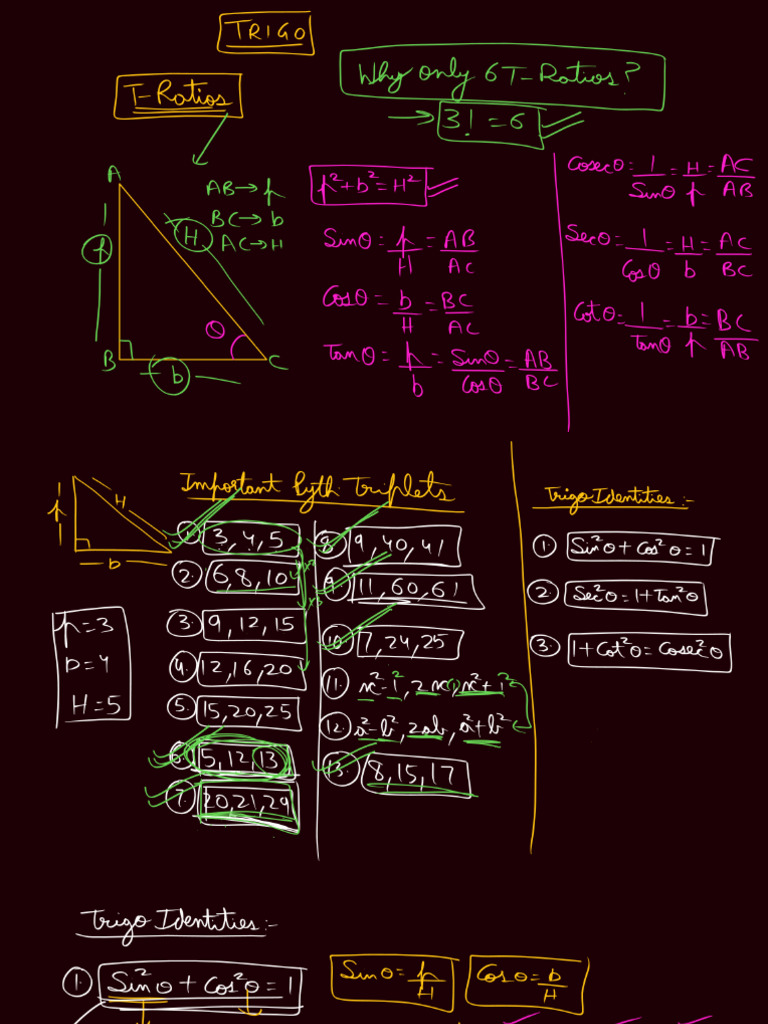 TRIGO
Why only 6 T-Ratios?
→ 3! = 6
T-Ratios
A
B
C
p
b
H
θ
AB → p
BC → b
AC → H
p²+b²=H²
Sinθ = p/H = AB/AC
Cosθ = b/H = BC/AC
Tanθ = p/b = Sinθ/Cosθ = AB/BC
Cosecθ = 1/Sinθ = H/p = AC/AB
Secθ = 1/Cosθ = H/b = AC/BC
Cotθ = 1/Tanθ = b/p = BC/AB
p
H
b
p=3
b=4
H=5
Important Pyth Triplets
1. 3, 4, 5
2. 6, 8, 10
3. 9, 12, 15
4. 12, 16, 20
5. 15, 20, 25
6. 5, 12, 13
7. 20, 21, 29
8. 9, 40, 41
9. 11, 60, 61
10. 7, 24, 25
11. x²-1², 2x(1), x²+1²
12. a²-b², 2ab, a²+b²
13. 8, 15, 17
Trigo Identities:-
1. Sin²θ + Cos²θ = 1
2. Sec²θ = 1+Tan²θ
3. 1+Cot²θ = Cosec²θ
Trigo Identities:-
1. Sin²θ + Cos²θ = 1
Sinθ = p/H
Cosθ = b/H